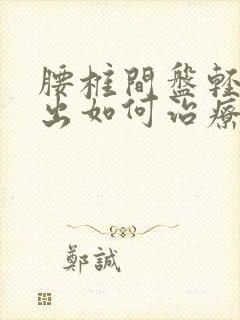 腰椎間盤輕
出如何治療
鄭誠